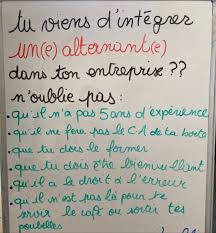 tu viens d'intégrer
un(e) alternant(e)
dans ton entreprise ??
n'oublie pas :
• qu'il n'a pas 5 ans d'expérience
• qu'il ne fera pas le CA de ta boîte
• que tu dois le former
• que tu dois être bienveillant
• qu'il a le droit à l'erreur
• qu'il n'est pas là pour te
servir le café ou sortir tes
poubelles